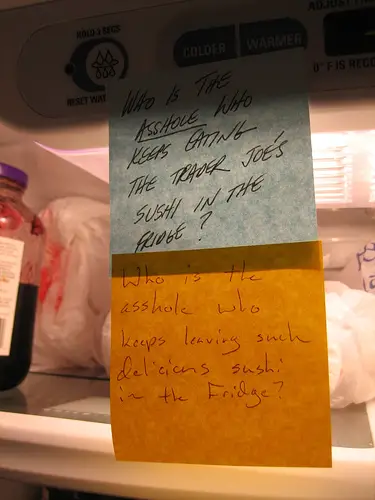 HOLD 3 SECS
RESET WAT
COLDER WARMER
ADJUST
0° F IS REC
WHO IS THE
ASSHOLE WHO
KEEPS EATING
THE TRADER JOE'S
SUSHI IN THE
FRIDGE?
Who is the
asshole who
keeps leaving such
delicious sushi
in the Fridge?